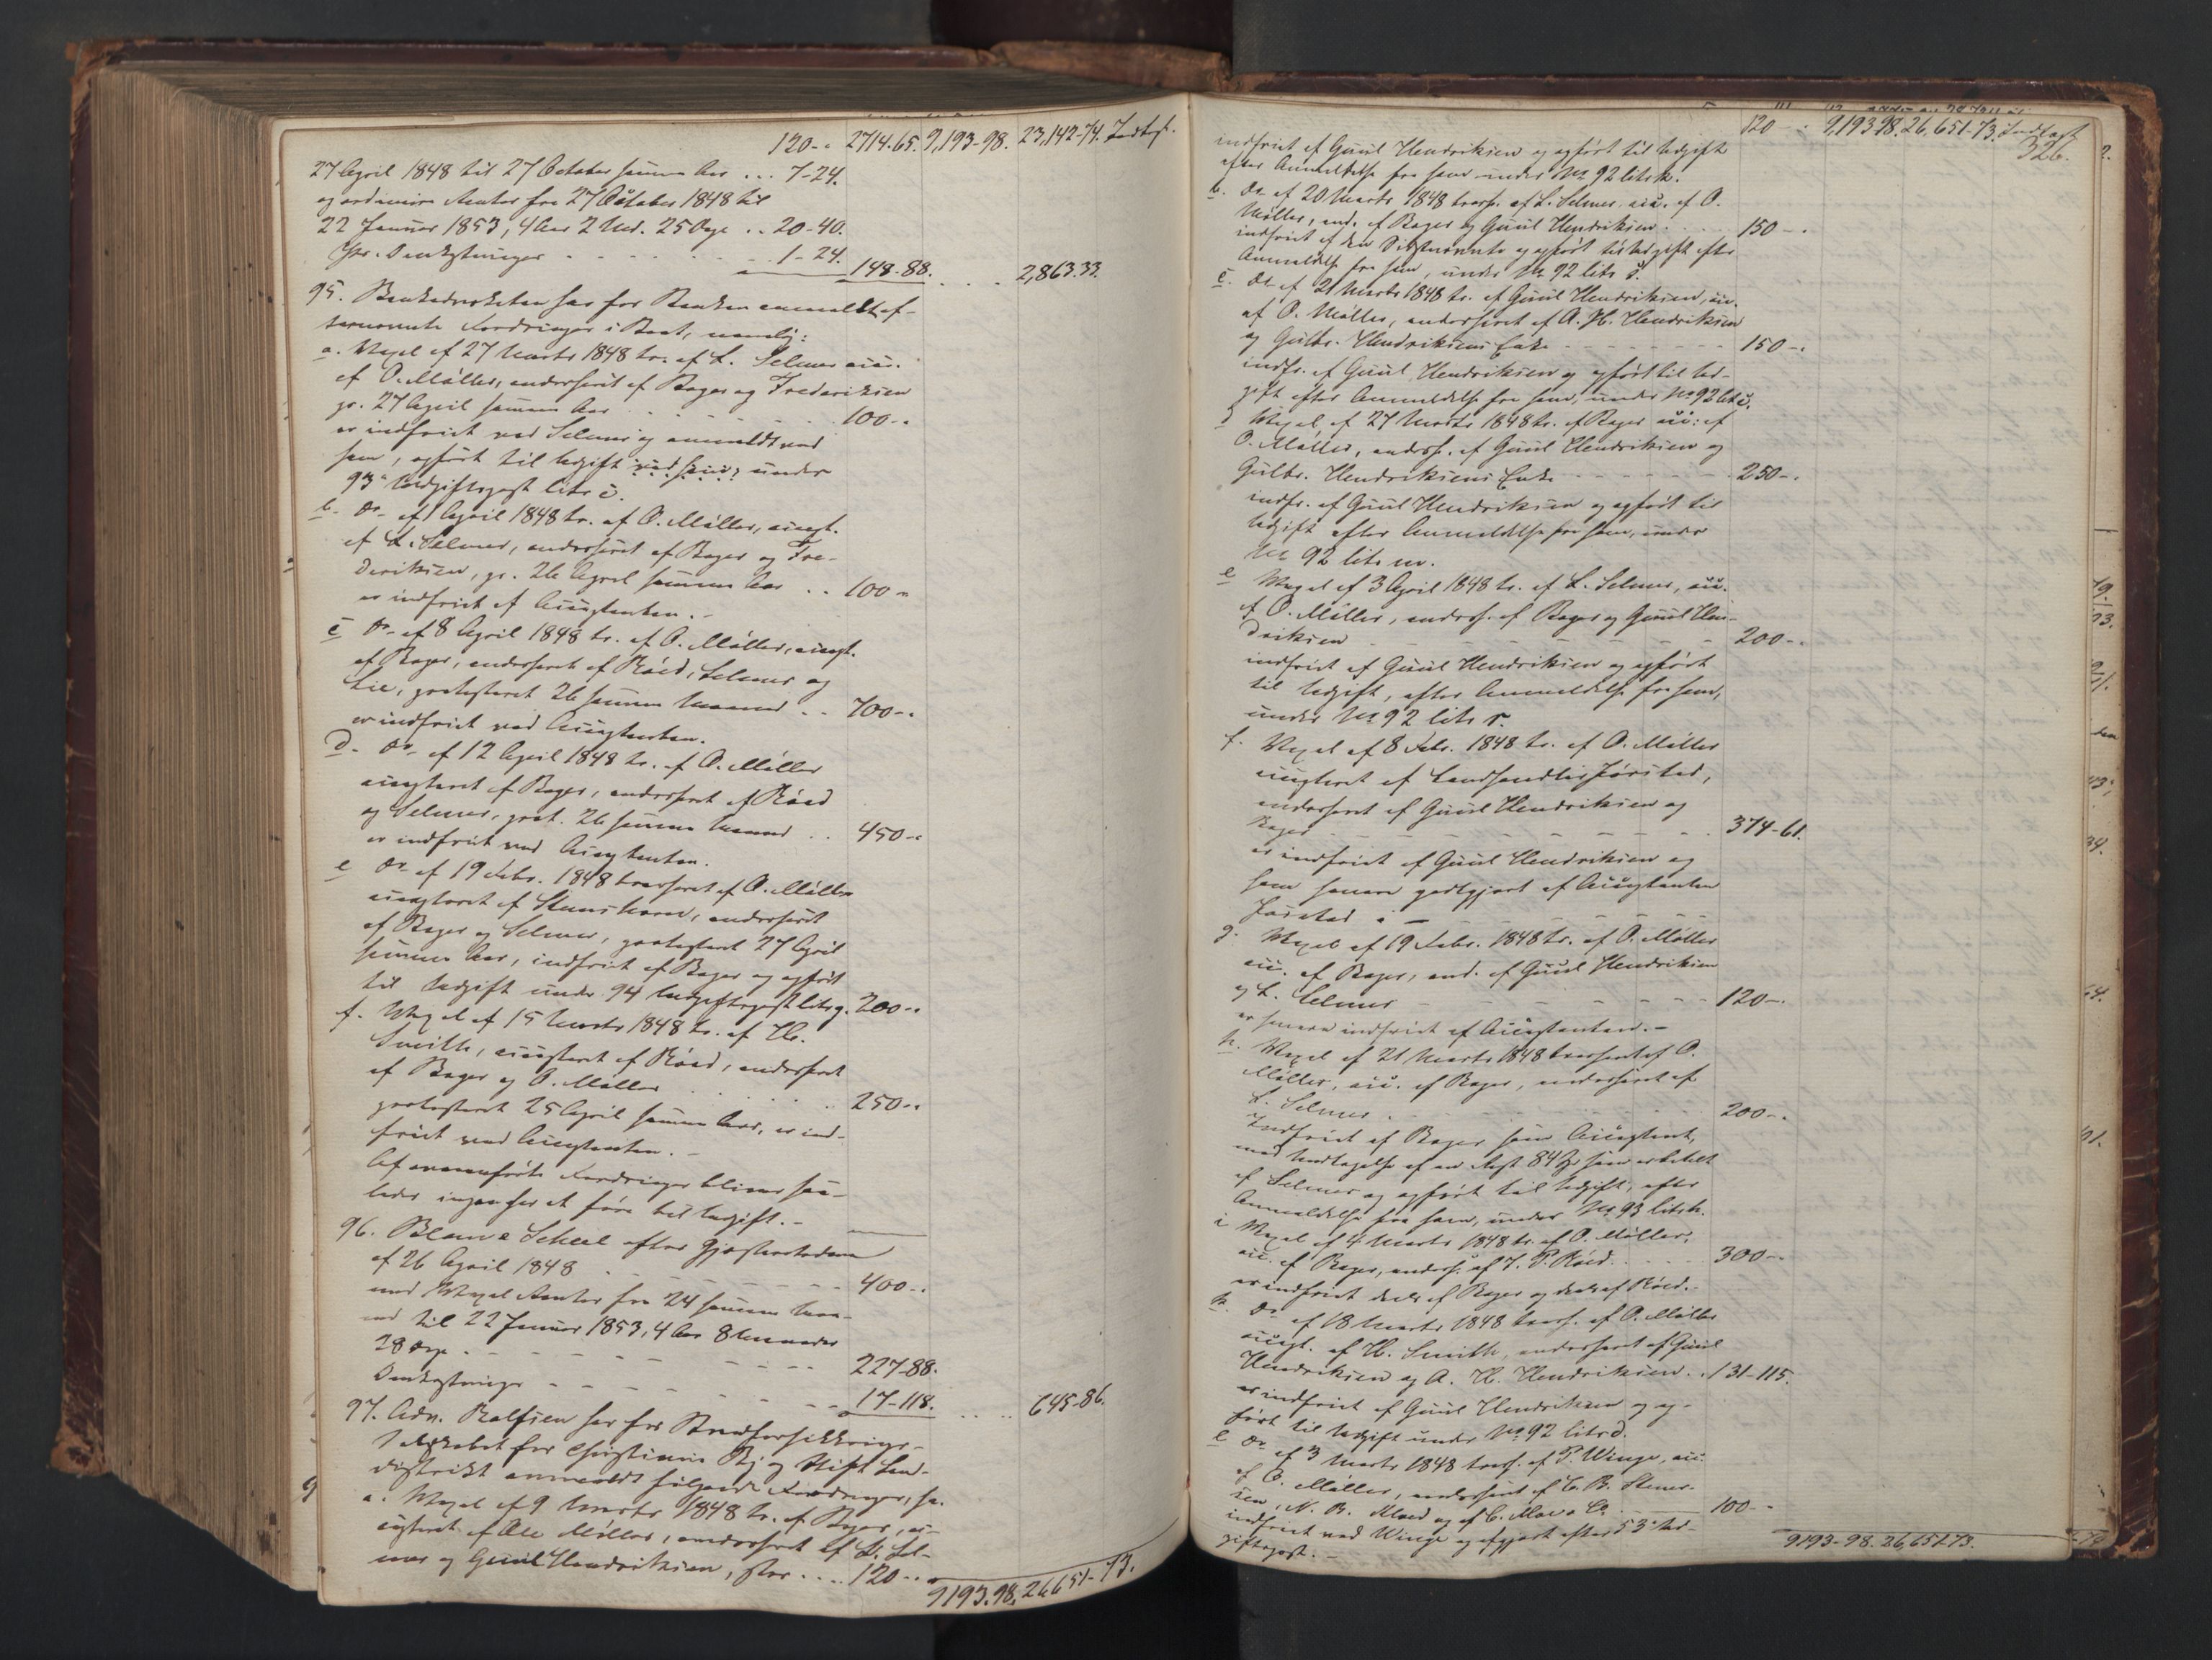 120-" 2714.65. 9,193-98. 23,142-74. Indtægt.
27 April 1848 til 27 October samme Aar ... 7-24.
og ordinaire Renter fra 27 October 1848 til
22 Januar 1853, 4 Aar 2 Md. 25 Dage .. 20-40.
Omkostninger - - - - 1-24. 148-88. . . . 2,863.33.
95. Bankadvokaten har for Banken anmeldt ef-
ternævnte Fordringer i Boet, nemlig:
a. Vexel af 27 Marts 1848 tr. af L. Selmer acc.
af O. Møller, endosseret af Bager og Frederiksen
pr. 27 April samme Aar . . . 100-"
er indfriet ved Selmer og anmeldt ved
ham, opført til Udgift ved ham, under
93 Udgiftspost litr c.
b. Do af 1 April 1848 tr. af O. Møller, accept.
af L. Selmer, endosseret af Bager og Fre-
deriksen, pr. 26 April samme Aar . . 100-"
er indfriet af Acceptanten. -
c Do af 8 April 1848 tr. af O. Møller, accept.
af Bager, endosseret af Röed, Selmer og
Lie, protesteret 26 samme Maaned . . 700-"
er indfriet ved Acceptanten.
d. Do af 12 April 1848 tr. af O. Møller
accepteret af Bager, endosseret af Röed
og Selmer, prot. 26 samme Maaned . . 450-"
er indfriet ved Acceptanten.
e Do af 19 Febr. 1848 trasseret af O. Møller
accepteret af, endosseret
af Bager og Selmer, protesteret 27 April
samme Aar, indfriet af Bager og opført
til Udgift under 94 Udgiftspost litr g. 200-"
f. Vexel af 15 Marts 1848 tr. af H.
Smith, accepteret af Röed, endosseret
af Bager og O. Møller . . . 250-"
protesteret 25 April samme Aar, er ind-
friet ved Acceptanten. -
Af ovennævnte Fordringer bliver saa-
ledes ingen her at føre til Udgift. -
96. Scheel efter Gjældsbrev
af 26 April 1848 - - - - 400-"
med Vexel Renter fra 24 samme Maa-
ned til 22 Januar 1853, 4 Aar 8 Maaneder
28 Dage - - - - 227-88.
Omkostninger - - - - 17-118. . . . 645-86.
97. Adv. Rolfsen har for Brandforsikrings-
Selskabet for Christiania By og Stift Land-
distrikt anmeldt følgende Fordringer, sc.
a. Vexel af 9 Marts 1848 tr. af Bager, ac-
cepteret af Ole Møller, endosseret af L. Sel-
mer og Guul Hendriksen, stor . . . . 120-"
9193.98. 26651-73.
120-" 9,193-98. 26,651-73. Indtægt
326.
indfriet af Guul Hendriksen og opført til Udgift
efter Anmeldelse fra ham under No 92 litr k.
b. Do af 20 Marts 1848 trass. af L. Selmer, acc. af O.
Møller, end. af Bager og Guul Hendriksen . . . 150-"
indfriet af den Sidstnævnte og opført til Udgift efter
Anmeldelse fra ham, under No 92 litr
c. Do af 21 Marts 1848 tr. af Guul Hendriksen, acc.
af O. Møller, endosseret af A. H. Hendriksen
og Gulbr. Hendriksens Enke - - - 150-"
indfr. af Guul Hendriksen og opført til Ud-
gift efter Anmeldelse fra ham, under No 92 litr
d Vexel af 27 Marts 1848 tr. af Bager acc: af
O. Møller, endoss. af Guul Hendriksen og
Gulbr. Hendriksens Enke - - - 250-"
indfr. af Guul Hendriksen og opført til
Udgift efter Anmeldelse fra ham, under
No 92 litr m.
e Vexel af 3 April 1848 tr. af L. Selmer, acc.
af O. Møller, endoss. af Bager og Guul Hen-
driksen - - - 200-"
indfriet af Guul Hendriksen og opført
til Udgift, efter Anmeldelse fra ham,
under No 92 litr r.
f. Vexel af 8 Febr. 1848 tr. af O. Møller
accepteret af Landhandler Jørstad,
endosseret af Guul Hendriksen og
Bager - - - 374-61.
er indfriet af Guul Hendriksen og
ham senere godtgjort af Acceptanten
Jørstad -
g. Vexel af 19 Febr. 1848 tr. af O. Møller
acc. af Bager, end. af Guul Hendriksen
og L. Selmer - - - 120-"
er senere indfriet af Acceptanten. -
h. Vexel af 21 Marts 1848 trasseret af O.
Møller, acc. af Bager, endosseret af
L. Selmer . . . 200-"
Indfriet af Bager som Acceptant,
med Undtagelse af en Rest 84 som er betalt
af Selmer og opført til Udgift, efter
Anmeldelse fra ham, under No 93 litr h.
i Vexel af 4 Marts 1848 tr. af O. Møller,
acc. af Bager, endoss. af J. P. Röed . . . 300-"
er indfriet deels af Bager og deels af Röed. -
k. Do af 18 Marts 1848 trass. af O. Møller
accept. af H. Smith, endosseret af Guul
Hendriksen og A. H. Hendriksen. . 131-115.
er indfriet af Guul Hendriksen og op-
ført til Udgift under No 92 litr d.
l Do af 3 Marts 1848 trass. af P. Winge, acc
af O. Møller, endosseret af C. B. Stener-
sen, N. B. og af C. Moe & Co. 100-"
indfriet ved Winge og opført efter 53 Ud-
giftspost. -
9193-98. 26,651-73.